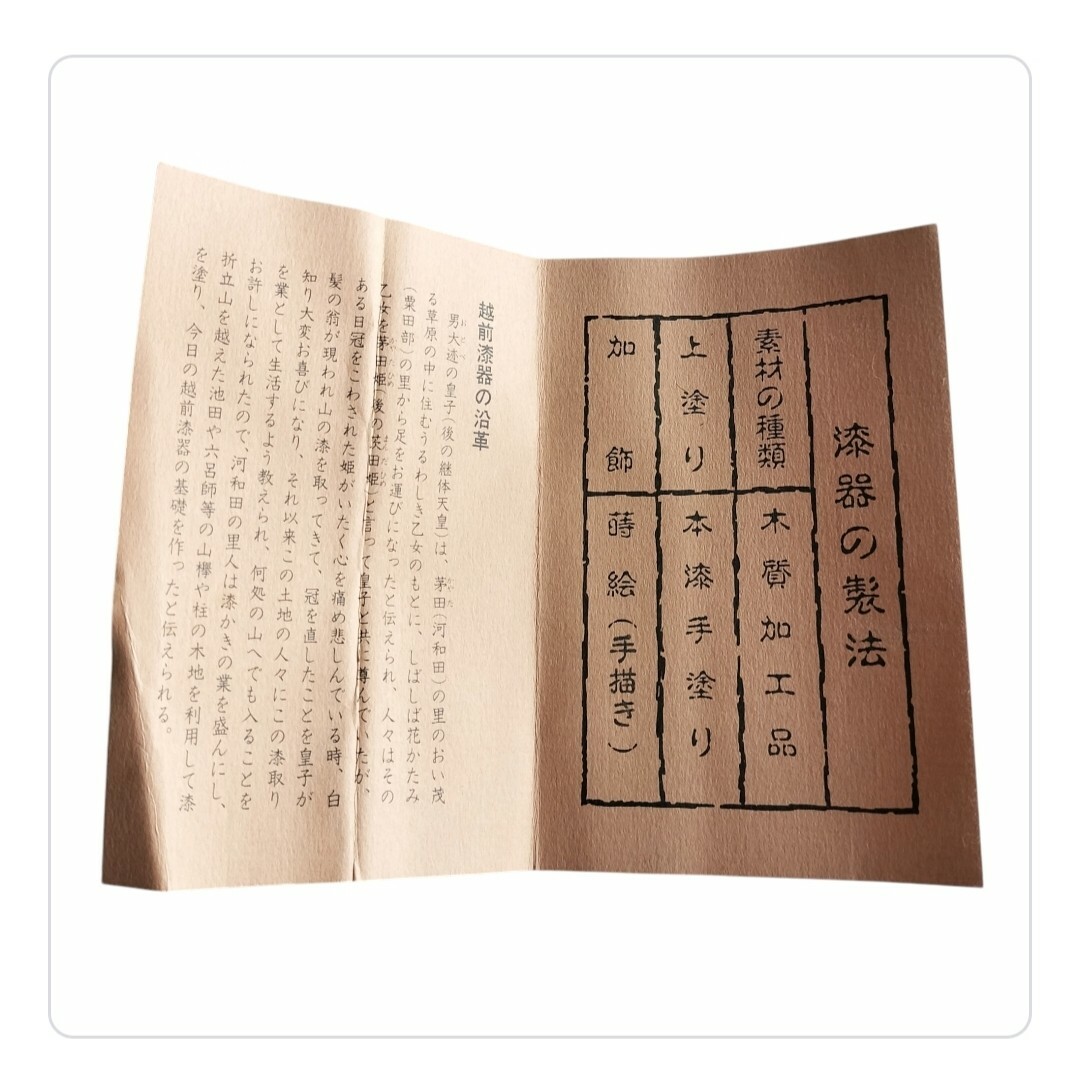 漆器の製法
素材の種類 木質加工品
上塗り 本漆手塗り
加飾 蒔絵(手描き)
越前漆器の沿革
男大迹の皇子(後の継体天皇)は、茅田(河和田)の里のおい茂
る草原の中に住むうるわしき乙女のもとに、しばしば花かたみ
(粟田部)の里から足をお運びになったと伝えられ、人々はその
乙女を茅田姫(後の茨田姫)と言って皇子と共に尊んでいたが、
ある日冠をこわされた姫がいたく心を痛め悲しんでいる時、白
髪の翁が現われ山の漆を取ってきて、冠を直したことを皇子が
知り大変お喜びになり、それ以来この土地の人々にこの漆取り
を業として生活するよう教えられ、何処の山へでも入ることを
お許しになられたので、河和田の里人は漆かきの業を盛んにし、
折立山を越えた池田や六呂師等の山欅や柱の木地を利用して漆
を塗り、今日の越前漆器の基礎を作ったと伝えられる。